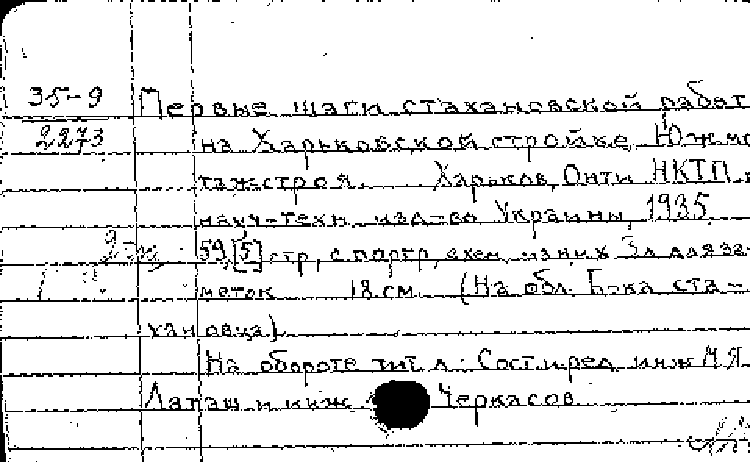 35-9
2273
Первые шаги стахановской работ
на Харьковской стройке Южмо
тажстроя. Харьков, Онти НКТП
науч-техн. изд-во Украины, 1935.
59, [5] стр., с портр., схем, из них 3 л для за
меток 18 см (На обл. Б-ка ста-
хановца)
На обороте тит. л.: Сост. и ред. инж М.Я.
Лапаш и инж Черкасов